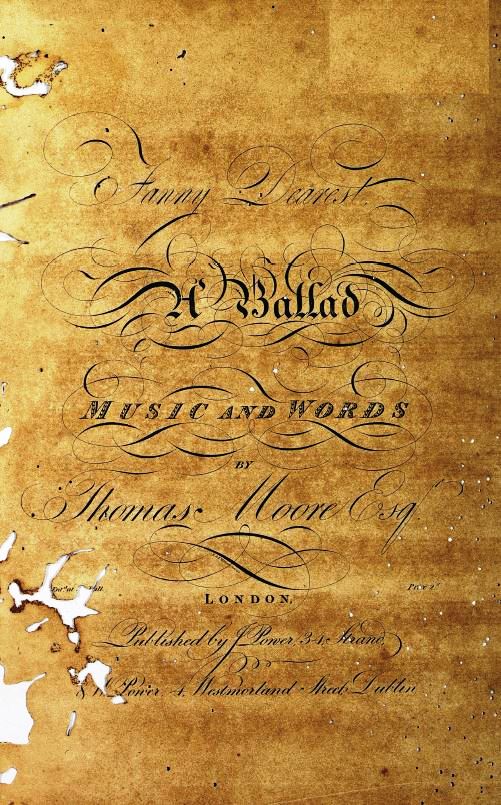 Fanny Dearest
A Ballad
MUSIC AND WORDS
BY
Thomas Moore Esqr
Price 2s
LONDON,
Published by J. Power, 34, Strand,
& W. Power 4, Westmorland Street Dublin